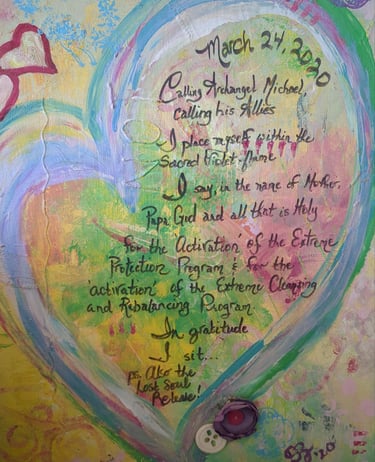 March 24, 2020
Calling Archangel Michael,
calling his Allies
I place myself within the
Sacred Violet-flame
I say, in the name of Mother,
Papa God and all that is Holy
for the Activation of the Extreme
Protection Program & for the
'activation' of the Extreme Cleansing
and Rebalancing Program.
In gratitude
I sit...
ps. Also the
Lost Soul
Release!
.20